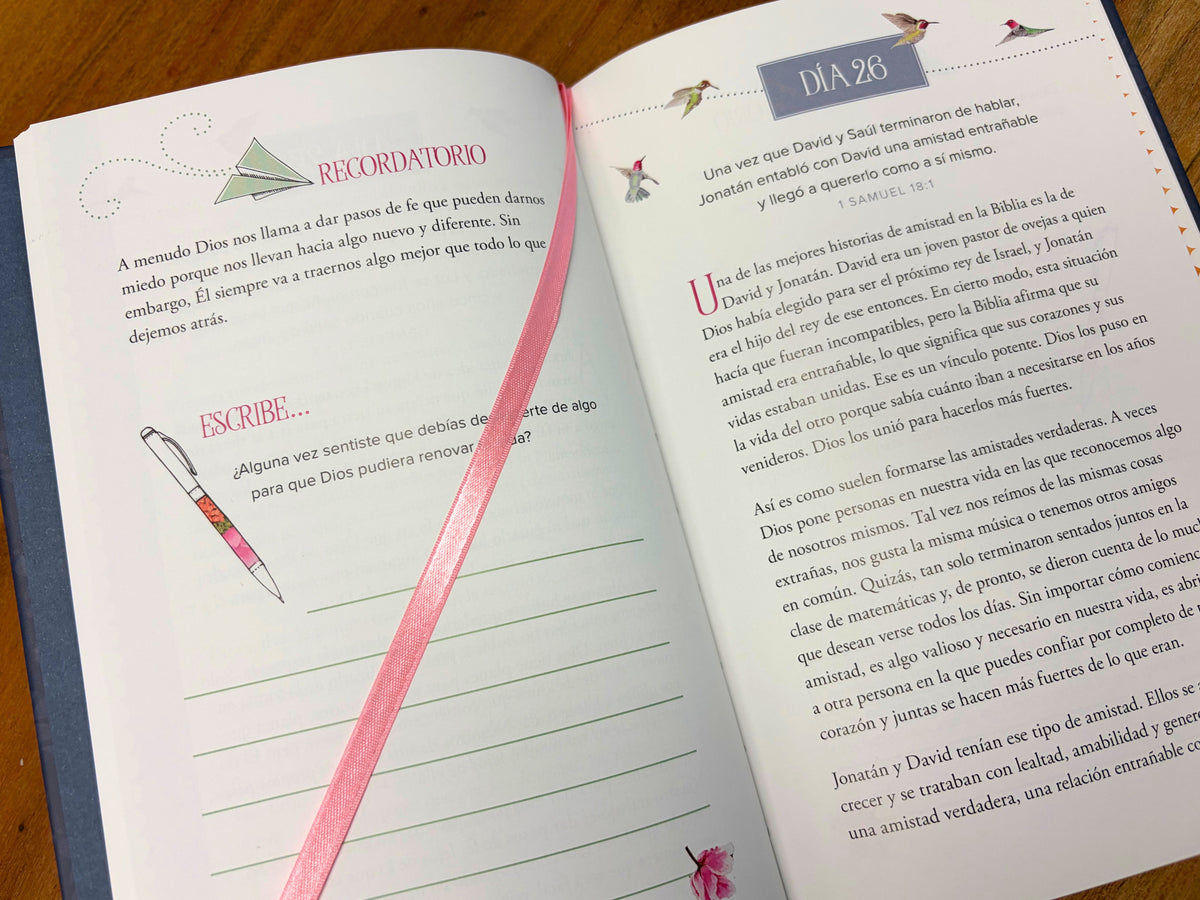 RECORDATORIO
A menudo Dios nos llama a dar pasos de fe que pueden darnos
miedo porque nos llevan hacia algo nuevo y diferente. Sin
embargo, Él siempre va a traernos algo mejor que todo lo que
dejemos atrás.
ESCRIBE...
¿Alguna vez sentiste que debías de algo
para que Dios pudiera renovar
DÍA 26
Una vez que David y Saúl terminaron de hablar,
Jonatán entabló con David una amistad entrañable
y llegó a quererlo como a sí mismo.
1 SAMUEL 18:1
Una de las mejores historias de amistad en la Biblia es la de
David y Jonatán. David era un joven pastor de ovejas a quien
Dios había elegido para ser el próximo rey de Israel, y Jonatán
era el hijo del rey de ese entonces. En cierto modo, esta situación
hacía que fueran incompatibles, pero la Biblia afirma que su
amistad era entrañable, lo que significa que sus corazones y sus
vidas estaban unidas. Ese es un vínculo potente. Dios los puso en
la vida del otro porque sabía cuánto iban a necesitarse en los años
venideros. Dios los unió para hacerlos más fuertes.
Así es como suelen formarse las amistades verdaderas. A veces
Dios pone personas en nuestra vida en las que reconocemos algo
de nosotros mismos. Tal vez nos reímos de las mismas cosas
extrañas, nos gusta la misma música o tenemos otros amigos
en común. Quizás, tan solo terminaron sentados juntos en la
clase de matemáticas y, de pronto, se dieron cuenta de lo
que desean verse todos los días. Sin importar cómo
amistad, es algo valioso y necesario en nuestra vida, es
a otra persona en la que puedes confiar por completo de
corazón y juntas se hacen más fuertes de lo que eran.
Jonatán y David tenían ese tipo de amistad. Ellos se
crecer y se trataban con lealtad, amabilidad y
una amistad verdadera, una relación entrañable